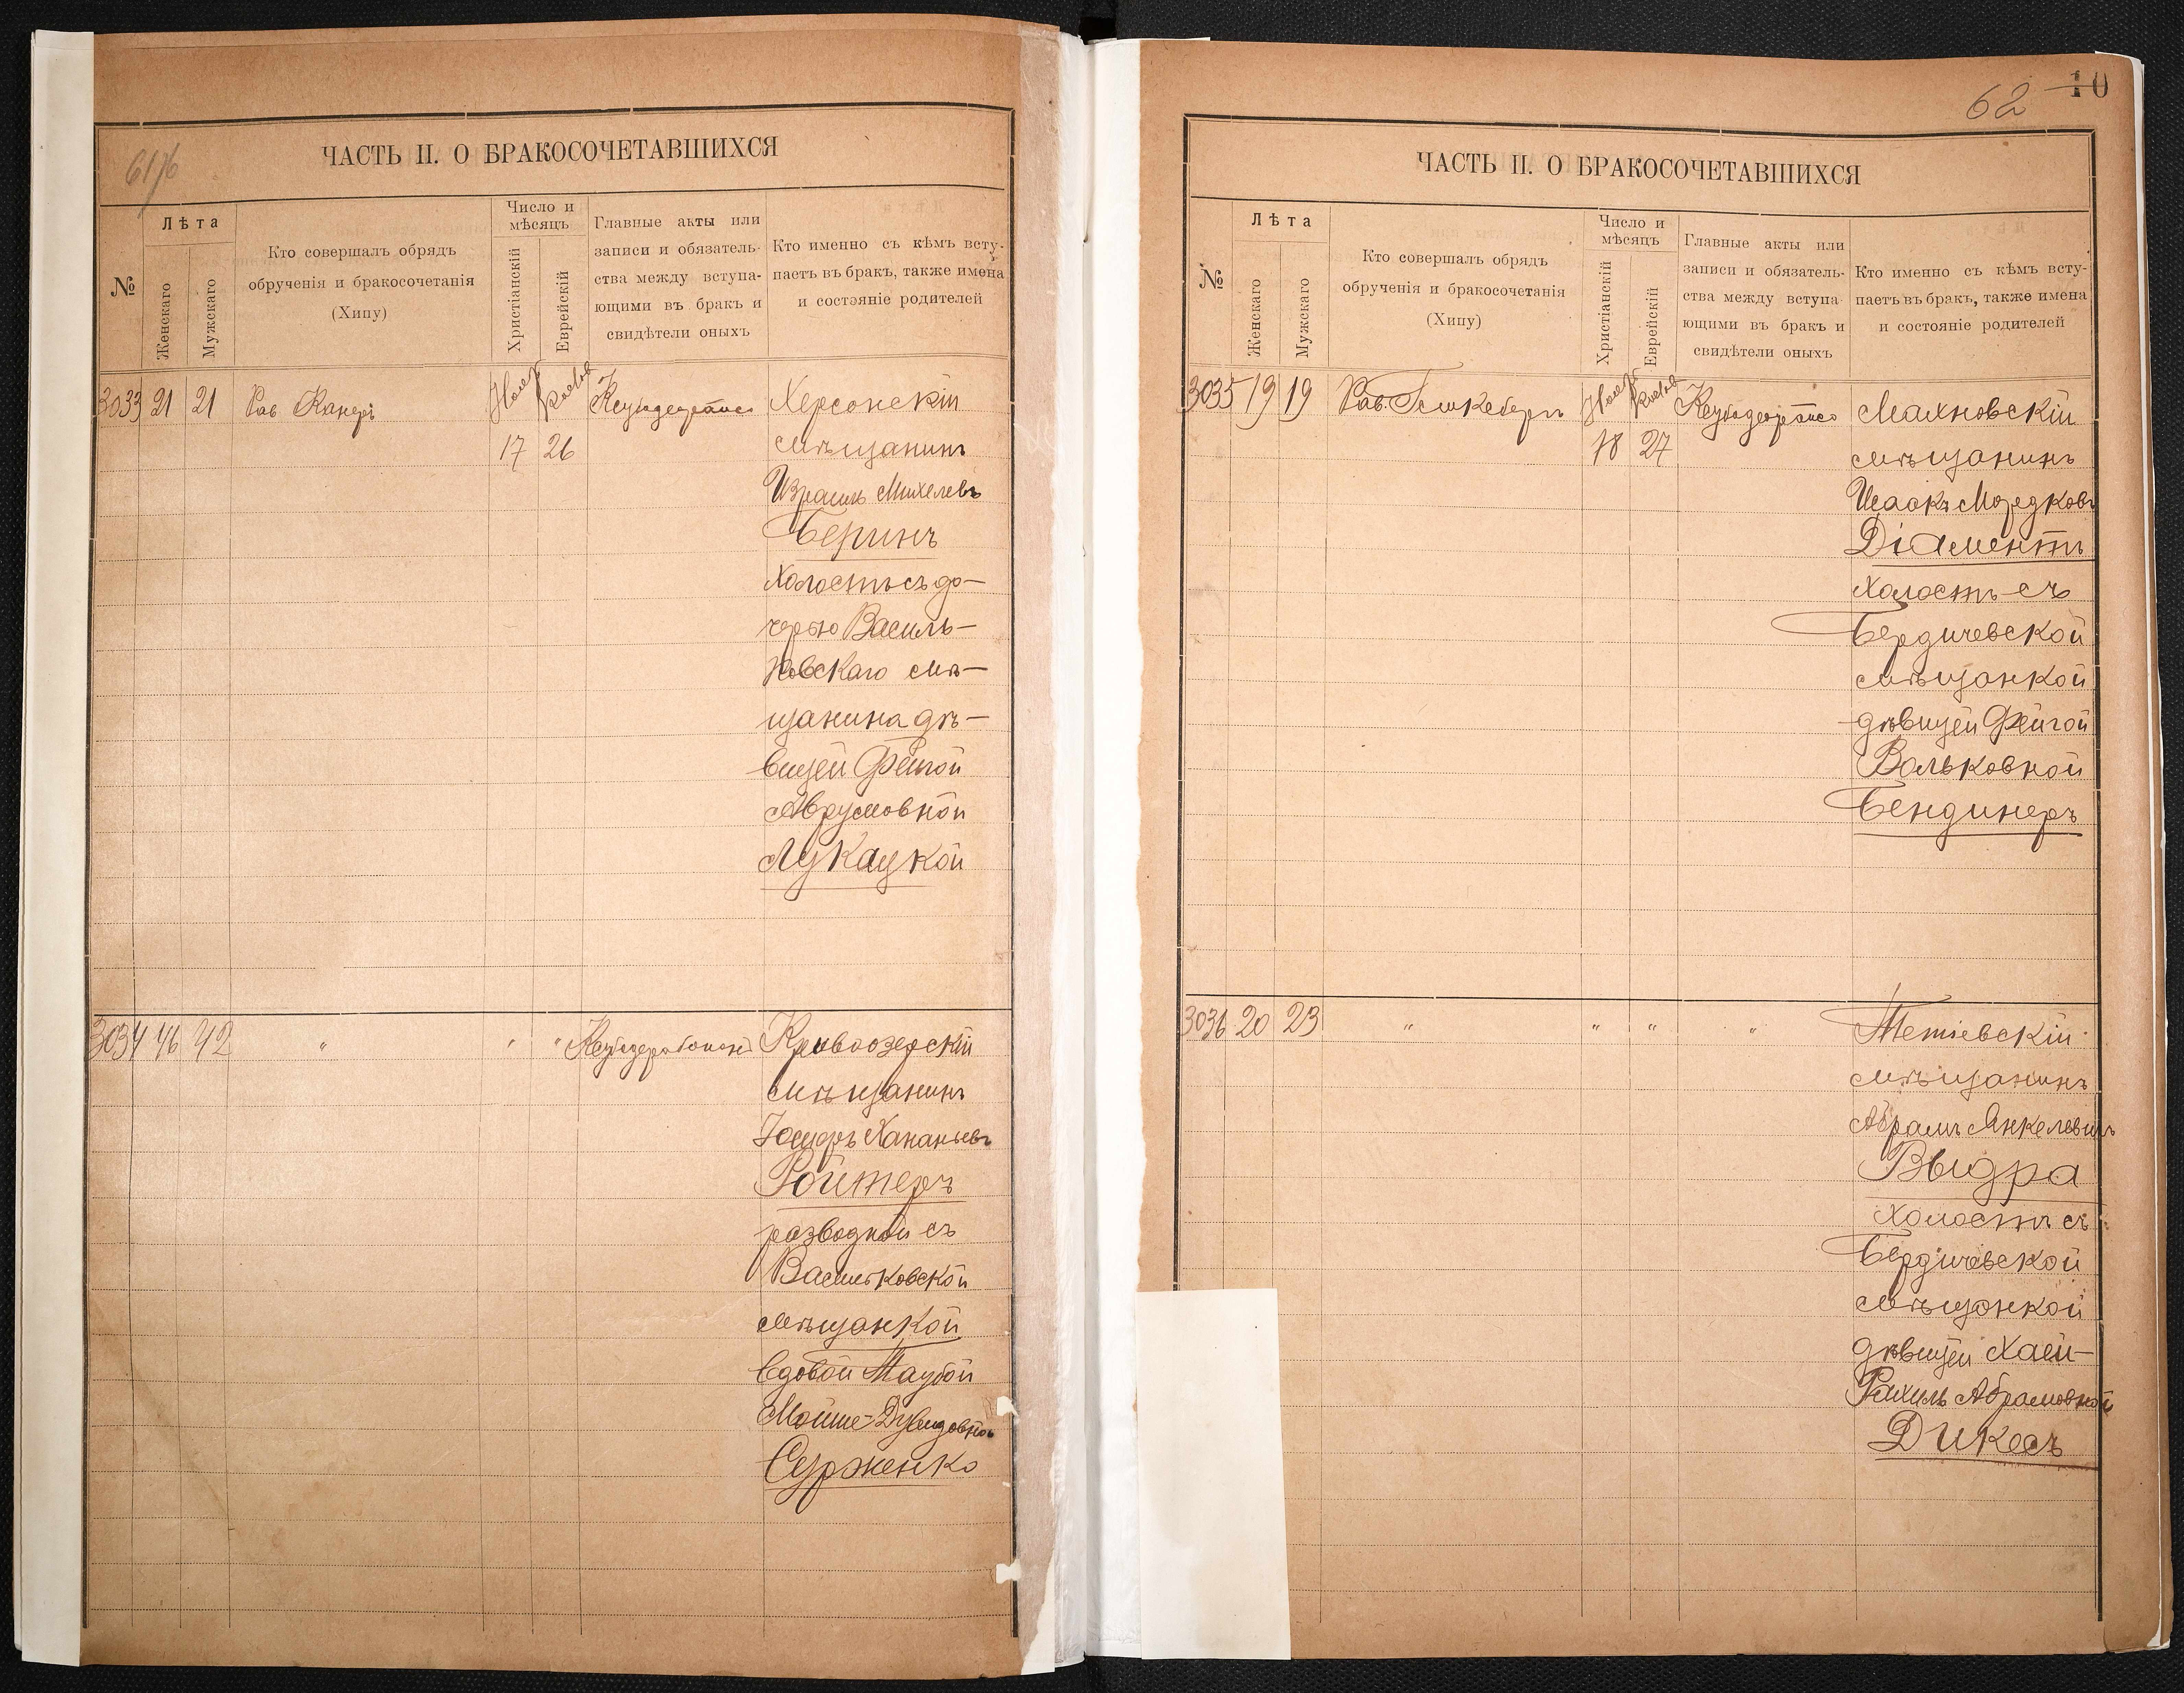 61/6
ЧАСТЬ II. О БРАКОСОЧЕТАВШИХСЯ
№
Лѣта
Женскаго
Мужскаго
Кто совершалъ обрядъ
обрученія и бракосочетанія
(Хипу)
Число и
мѣсяцъ
Христіанскій
Еврейскій
Главные акты или
записи и обязатель-
ства между вступа-
ющими въ бракъ и
свидѣтели оныхъ
Кто именно съ кѣмъ всту-
паетъ въ бракъ, также имена
и состояніе родителей
3033 21 21 Рав Канеръ
17 26
Херсонскій
мѣщанинъ
Израиль Михелевъ
Беринъ
холостъ съ до-
черью Василь-
ковскаго мѣ-
щанина дѣ-
вицей Фейгой
Аврумовной
Лукацкой
3034 46 42 " " "
Кривоозерскій
мѣщанинъ
Іосифъ Хананьевъ
Ройтеръ
разводной съ
Васильковской
мѣщанкой
вдовой Таубой
Мойше-Дувидовной
Сурженко
62 10
ЧАСТЬ II. О БРАКОСОЧЕТАВШИХСЯ
№
Лѣта
Женскаго
Мужскаго
Кто совершалъ обрядъ
обрученія и бракосочетанія
(Хипу)
Число и
мѣсяцъ
Христіанскій
Еврейскій
Главные акты или
записи и обязатель-
ства между вступа-
ющими въ бракъ и
свидѣтели оныхъ
Кто именно съ кѣмъ всту-
паетъ въ бракъ, также имена
и состояніе родителей
3035 19 19 Рав.
18 27
Махновскій
мѣщанинъ
Исаакъ Мордковъ
Діаментъ
холостъ съ
Бердичевской
мѣщанкой
дѣвицей Фейгой
Вольковной
Бендинеръ
3036 20 23 " " " "
Тетіевскій
мѣщанинъ
Абрамъ Янкелевичъ
Выдра
холостъ съ
Бердичевской
мѣщанкой
дѣвицей Хаей-
Рахиль Абрамовной
Дикесъ